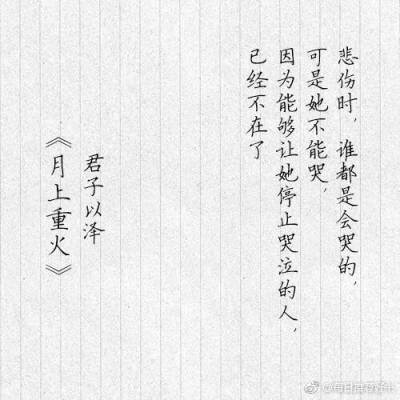 悲伤时，谁都是会哭的，
可是她不能哭，
因为能够让她停止哭泣的人，
已经不在了
君子以泽
《月上重火》